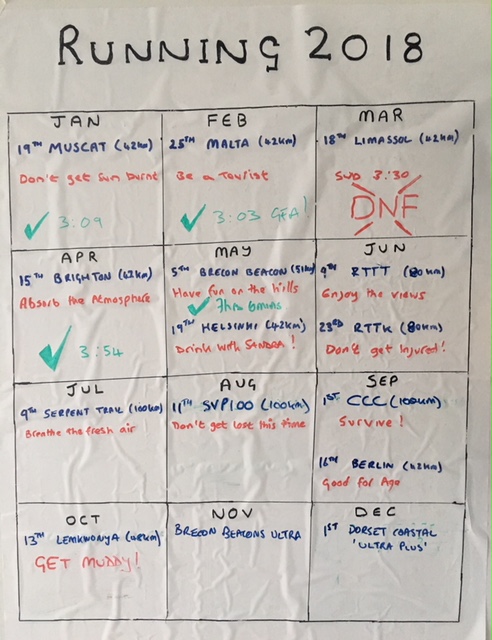 RUNNING 2018
JAN
19TH MUSCAT (42KM)
Don't get Sun burnt
✓ 3:09
FEB
25TH MALTA (42KM)
Be a Tourist
✓ 3:03 GFA!
MAR
18TH LIMASSOL (42KM)
SUB 3:30
DNF
APR
15TH BRIGHTON (42KM)
Absorb the Atmosphere
✓ 3:54
MAY
5TH BRECON BEACON (51KM)
Have fun on the hills
✓ 7hrs 6mins
19TH HELSINKI (42KM)
Drink with SANDRA!
JUN
9TH RTTT (80KM)
Enjoy the views
23RD RTTK (80KM)
Don't get Injured!
JUL
9TH SERPENT TRAIL (100KM)
Breathe the fresh air
AUG
11TH SVP100 (100KM)
Don't get lost this time
SEP
1ST CCC (100KM)
Survive!
16TH BERLIN (42KM)
Good for Age
OCT
13TH LEMKOWYNA (48KM)
GET MUDDY!
NOV
BRECON BEACONS ULTRA
DEC
1ST DORSET COASTAL
'ULTRA PLUS'